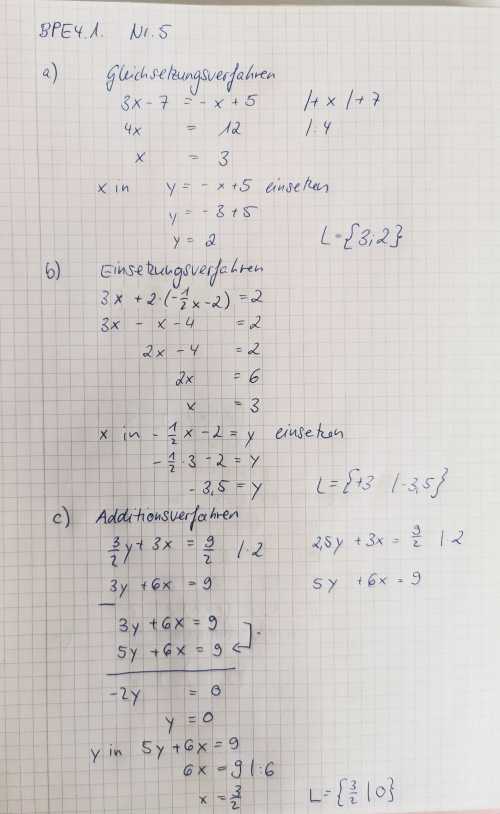 BPE4.1. Nr.5
a) Gleichsetzungsverfahren
3x - 7 = - x + 5 |+ x |+ 7
4x = 12 |:4
x = 3
x in y = - x + 5 einsetzen
y = - 3 + 5
y = 2 L = {3;2}
b) Einsetzungsverfahren
3x + 2·(-1/2x - 2) = 2
3x - x - 4 = 2
2x - 4 = 2
2x = 6
x = 3
x in - 1/2 x - 2 = y einsetzen
- 1/2 · 3 - 2 = y
- 3,5 = y L = {+3 | -3,5}
c) Additionsverfahren
3/2 y + 3x = 9/2 |·2 2,5y + 3x = 9/2 | 2
3y + 6x = 9 5y + 6x = 9
3y + 6x = 9
5y + 6x = 9
-2y = 0
y = 0
y in 5y + 6x = 9
6x = 9 |:6
x = 3/2 L = {3/2 | 0}